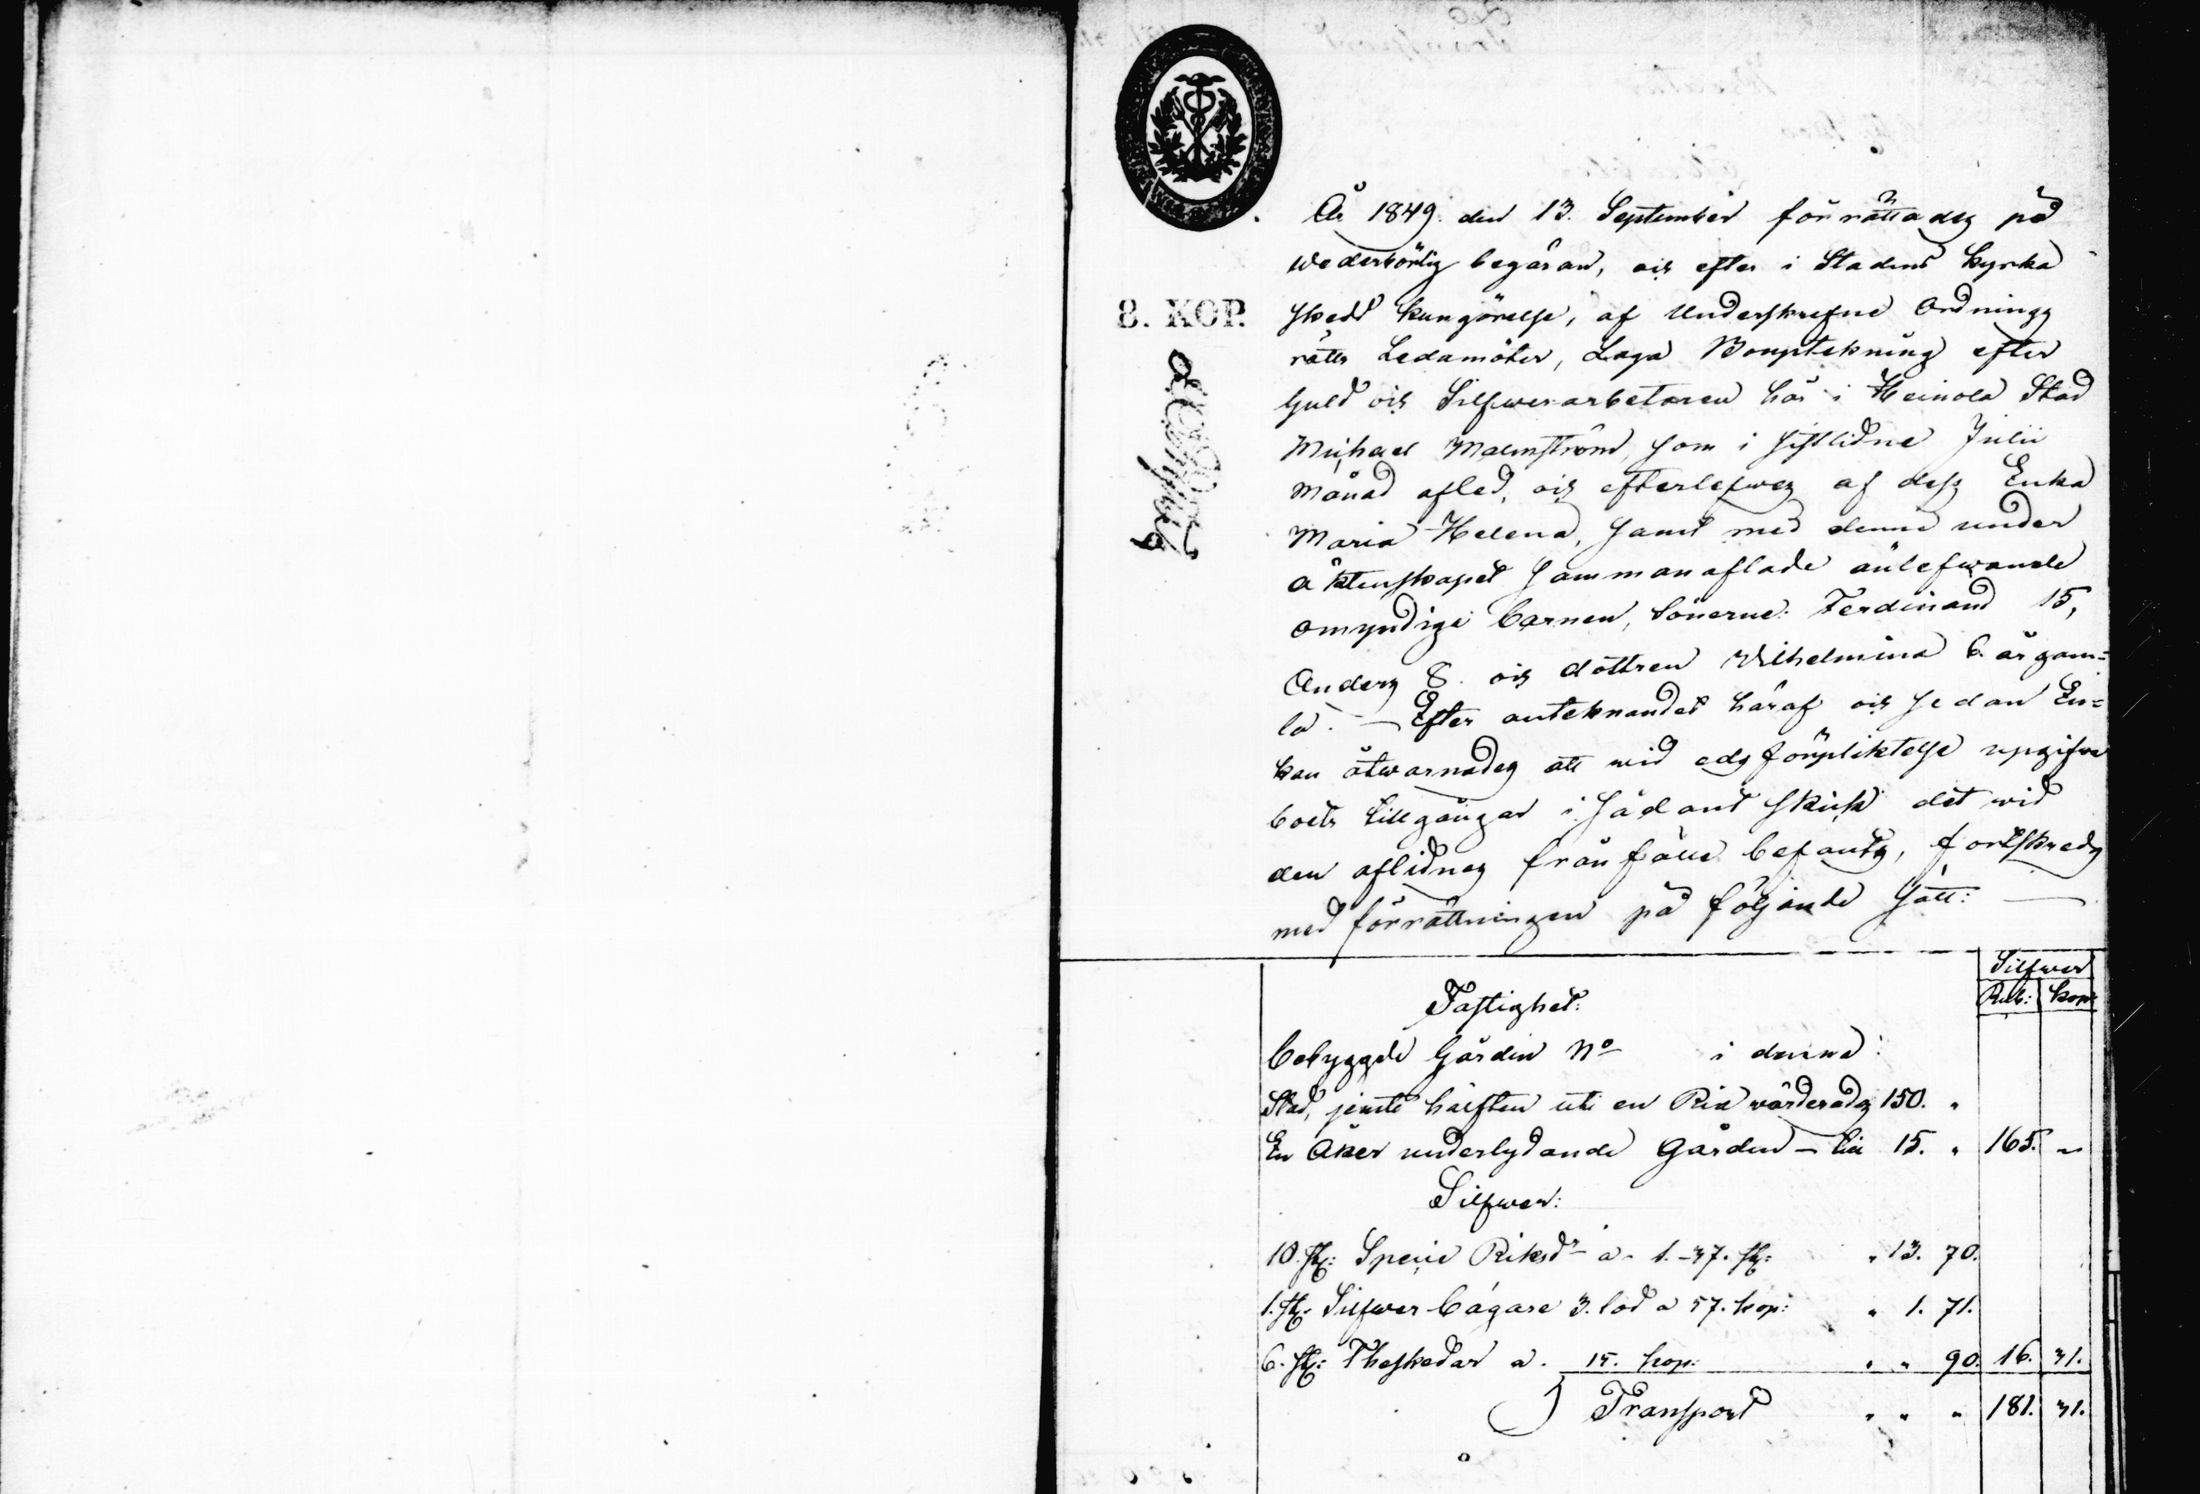 År 1849. den 13. September förrättades på
wederbörlig begäran, och efter i Stadens kyrka
8. KOP.
skedd kungörelse, af Underskrefne Ordnings
rätts Ledamöter, Laga Bouptekning efter
Guld och Silfwerarbetaren här i Heinola Stad
Michael Malmström, som i sistlidne Julii
månad afled, och efterlefwes af dess Enka
Maria Helena, samt med denne under
äktenskapet sammanaflade ännlefwande
omyndige barnen, Sönerne: Ferdinand 15,
Anders 8. och dottren Wilhelmina 6. år gam=
la. — Efter anteknandet häraf och sedan En=
kan åtwarnades att wid edsförpliktelse uppgifwa
boets tillgångar i sådant skick det wid
den aflidnes frånfälle befants, fortskreds
med förrättningen på följande sätt: —
Silfwer
Rub: kop:
Fastighet:
bebyggde Gården No i denna
Stad, jemte hälften uti en Ria wärderades 150. "
En Åker underlydande Gården — till 15. " 165. "
Silfwer:
10. st: Specie Riksdr a 1.-37. st: " 13. 70.
1. st: Silfwer bägare 3. lod a 57. kop: " 1. 71.
6. st: Theskedar a 15. kop: " " 90. 16. 31.
Transport " " " 181. 31.